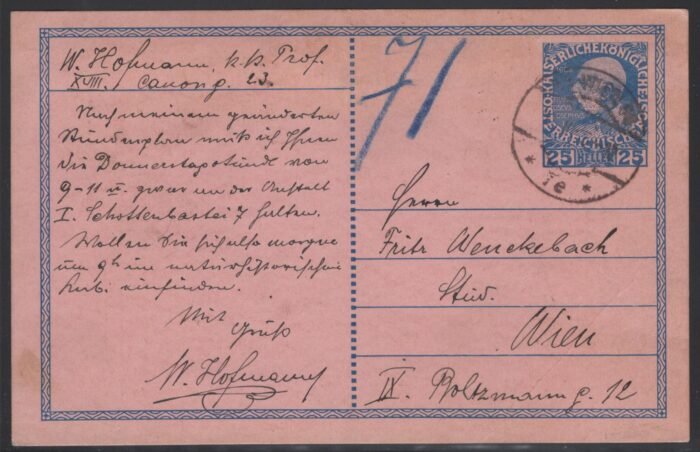 W. Hofmann, k.k. Prof.
XVIII. Canong. 23.
Nach meinem geänderten
Stundenplan muß ich Ihnen
die Donnerstagstunde von
9-11 u. zwar an der Anstalt
I. Schottenbastei 7 halten.
Wollen Sie sich also morgen
um 9h im naturhistorischen
Kab. einfinden.
Mit
Gruß
W. Hofmann
71
KAISERLICHEKÖNIGLICHE
ÖSTERREICHISCHE
25 HELLER 25
1e
Herrn
Fritz Wenckebach
Stud.
Wien
IX. Boltzmanng. 12